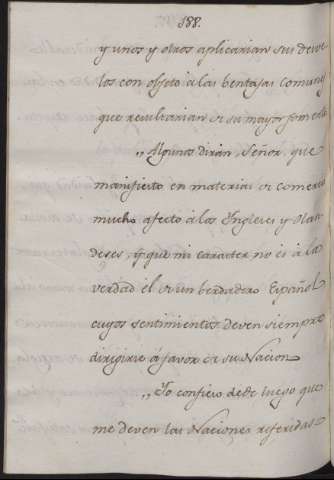 188.
y unos y otros aplicarian sus desve-
los con objeto a las bentajas comunes
que resultarian de su mayor fomento
,, Algunos dirán, Señor, que
manifiesto en materias de comercio
mucho afecto a los Ingleses y Olan-
deses, y que mi caracter no es a la
verdad el de un berdadero Español
cuyos sentimientos deven siempre
dirigirse á favor de su Nacion
,, Yo confieso desde luego que
me deven las Naciones referidas